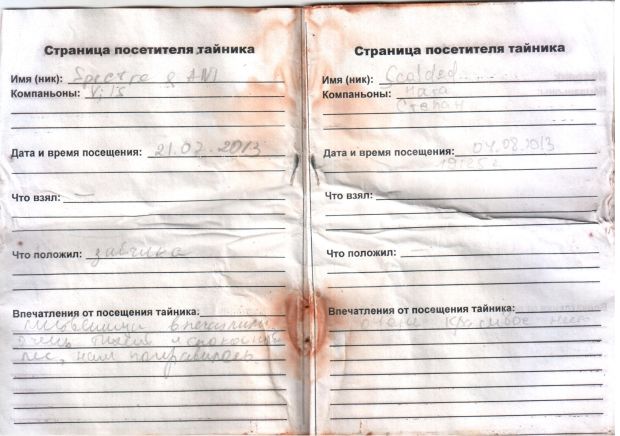 Страница посетителя тайника
Имя (ник): Spectre & ANI
Компаньоны:
Дата и время посещения: 21.07.2013
Что взял:
Что положил: зайчика
Впечатления от посещения тайника:
впечатлили
очень тихий и спокойный
лес, нам понравилось
Страница посетителя тайника
Имя (ник): Scalded
Компаньоны: Ната
Степан
Дата и время посещения: 04.08.2013
Что взял:
Что положил:
Впечатления от посещения тайника:
очень красивое место